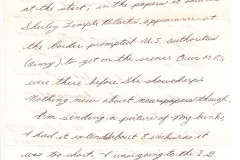 at the start; in the papers it said
Shirley Temple appearance at
the border prompted U.S. authorities
(Army) to get on the scene. Our M.P.'s
were there before She showed up.
Nothing new about newspapers though.
I'm sending a picture of my bunk;
I had it extended about 8 inches as it
was too short. I was going to the I.G.